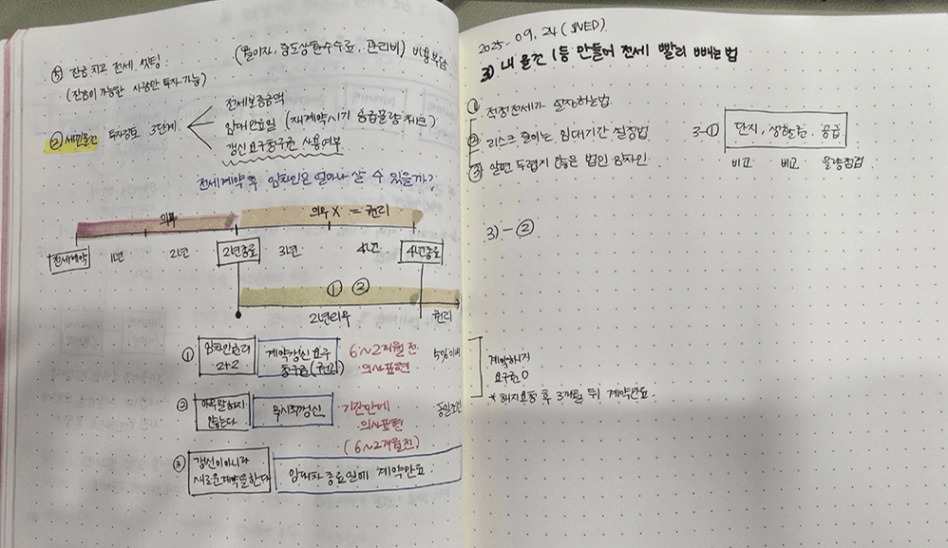 (중도상환수수료, 관리비) 비용부담
⑤ 잔금 치고 전세 셋팅
(잔금이 가능한 사람만 투자 가능)
② 투자검토 3단계
전세보증금액
임대만료일 (재계약시기 공급물량 체크)
갱신요구청구권 사용여부
전세계약 후 임차인은 얼마나 살 수 있을까?
의무
의무 X = 권리
전세계약
1년
2년
2년종료
3년
4년
4년종료
① ②
2년의무
권리
① 임차인권리 2+2
계약갱신요구
청구권(권리)
6~2개월 전
의사표현
5%이내
② 아무말하지
않는다
묵시적갱신
기간만에
의사표현
(6~2개월전)
③ 갱신이아니라
새로운계약을한다
임대차 종료일에 계약만료
계약해지
요구권 O
* 해지요청 후 3개월 뒤 계약만료
2025. 09. 24 (WED).
3) 내 물건 1등 만들어 전세 빨리 빼는 법
① 적정전세가 설정하는법
② 리스크 줄이는 임대기간 설정법
③ 알면 두렵지 않은 법인 임차인
3-① 단지, 생활권, 공급
비교 비교 물량점검
3) - ②